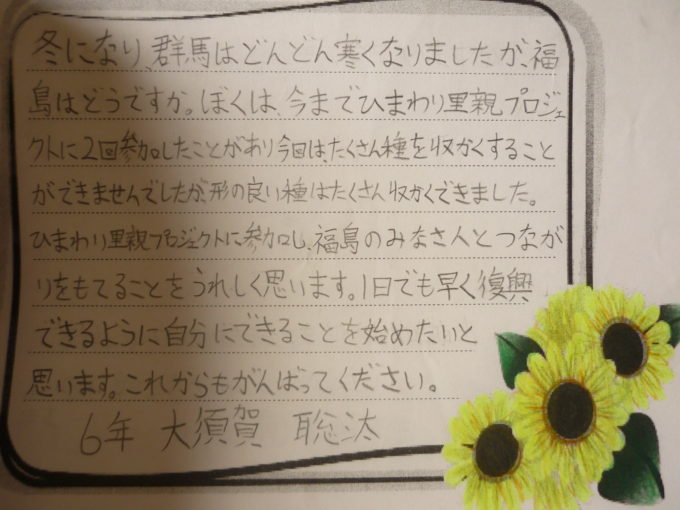 冬になり、群馬はどんどん寒くなりましたが、福
島はどうですか。ぼくは、今までひまわり里親プロジェ
クトに2回参加したことがあり今回は、たくさん種を収かくすること
ができませんでしたが、形の良い種はたくさん収かくできました。
ひまわり里親プロジェクトに参加し、福島のみなさんとつなが
りをもてることをうれしく思います。1日でも早く復興
できるように自分にできることを始めたいと
思います。これからもがんばってください。
6年 大須賀 聡汰